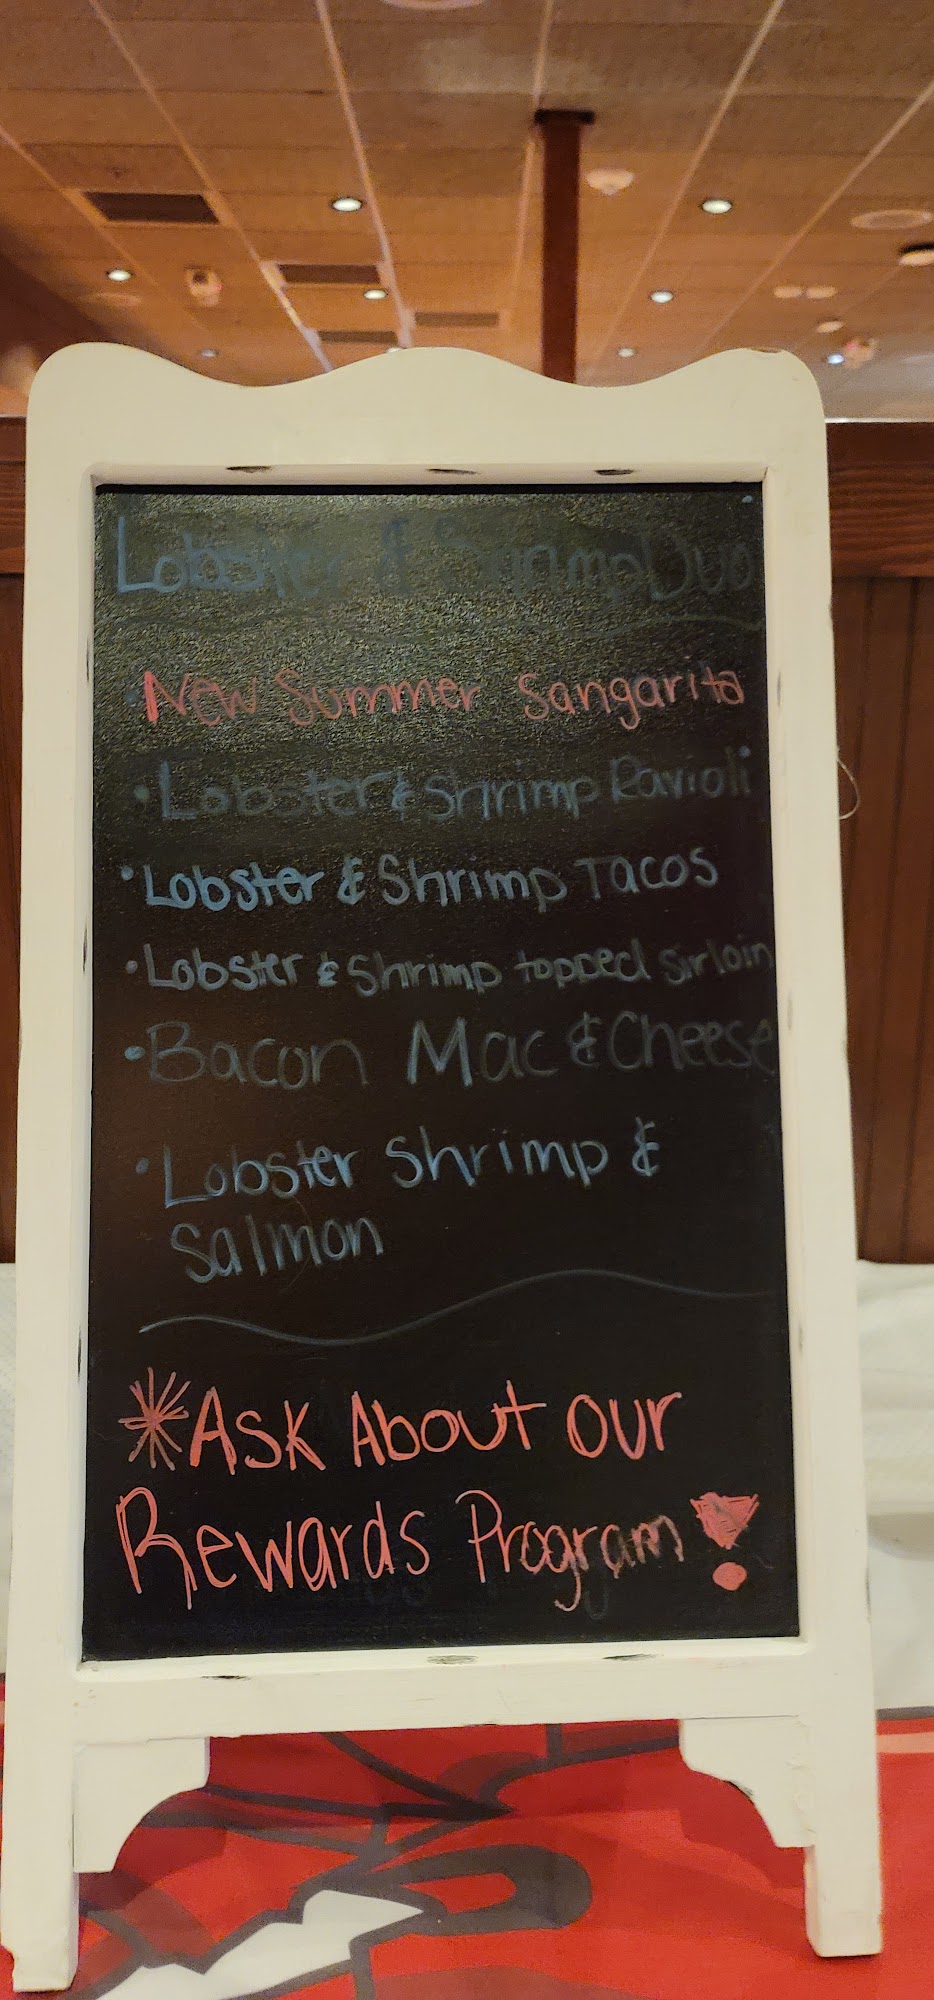 Lobster & Shrimp Duo
New Summer Sangarita
• Lobster & Shrimp Ravioli
• Lobster & Shrimp Tacos
• Lobster & Shrimp topped Sirloin
• Bacon Mac & Cheese
• Lobster Shrimp &
Salmon
* Ask About our
Rewards Program!